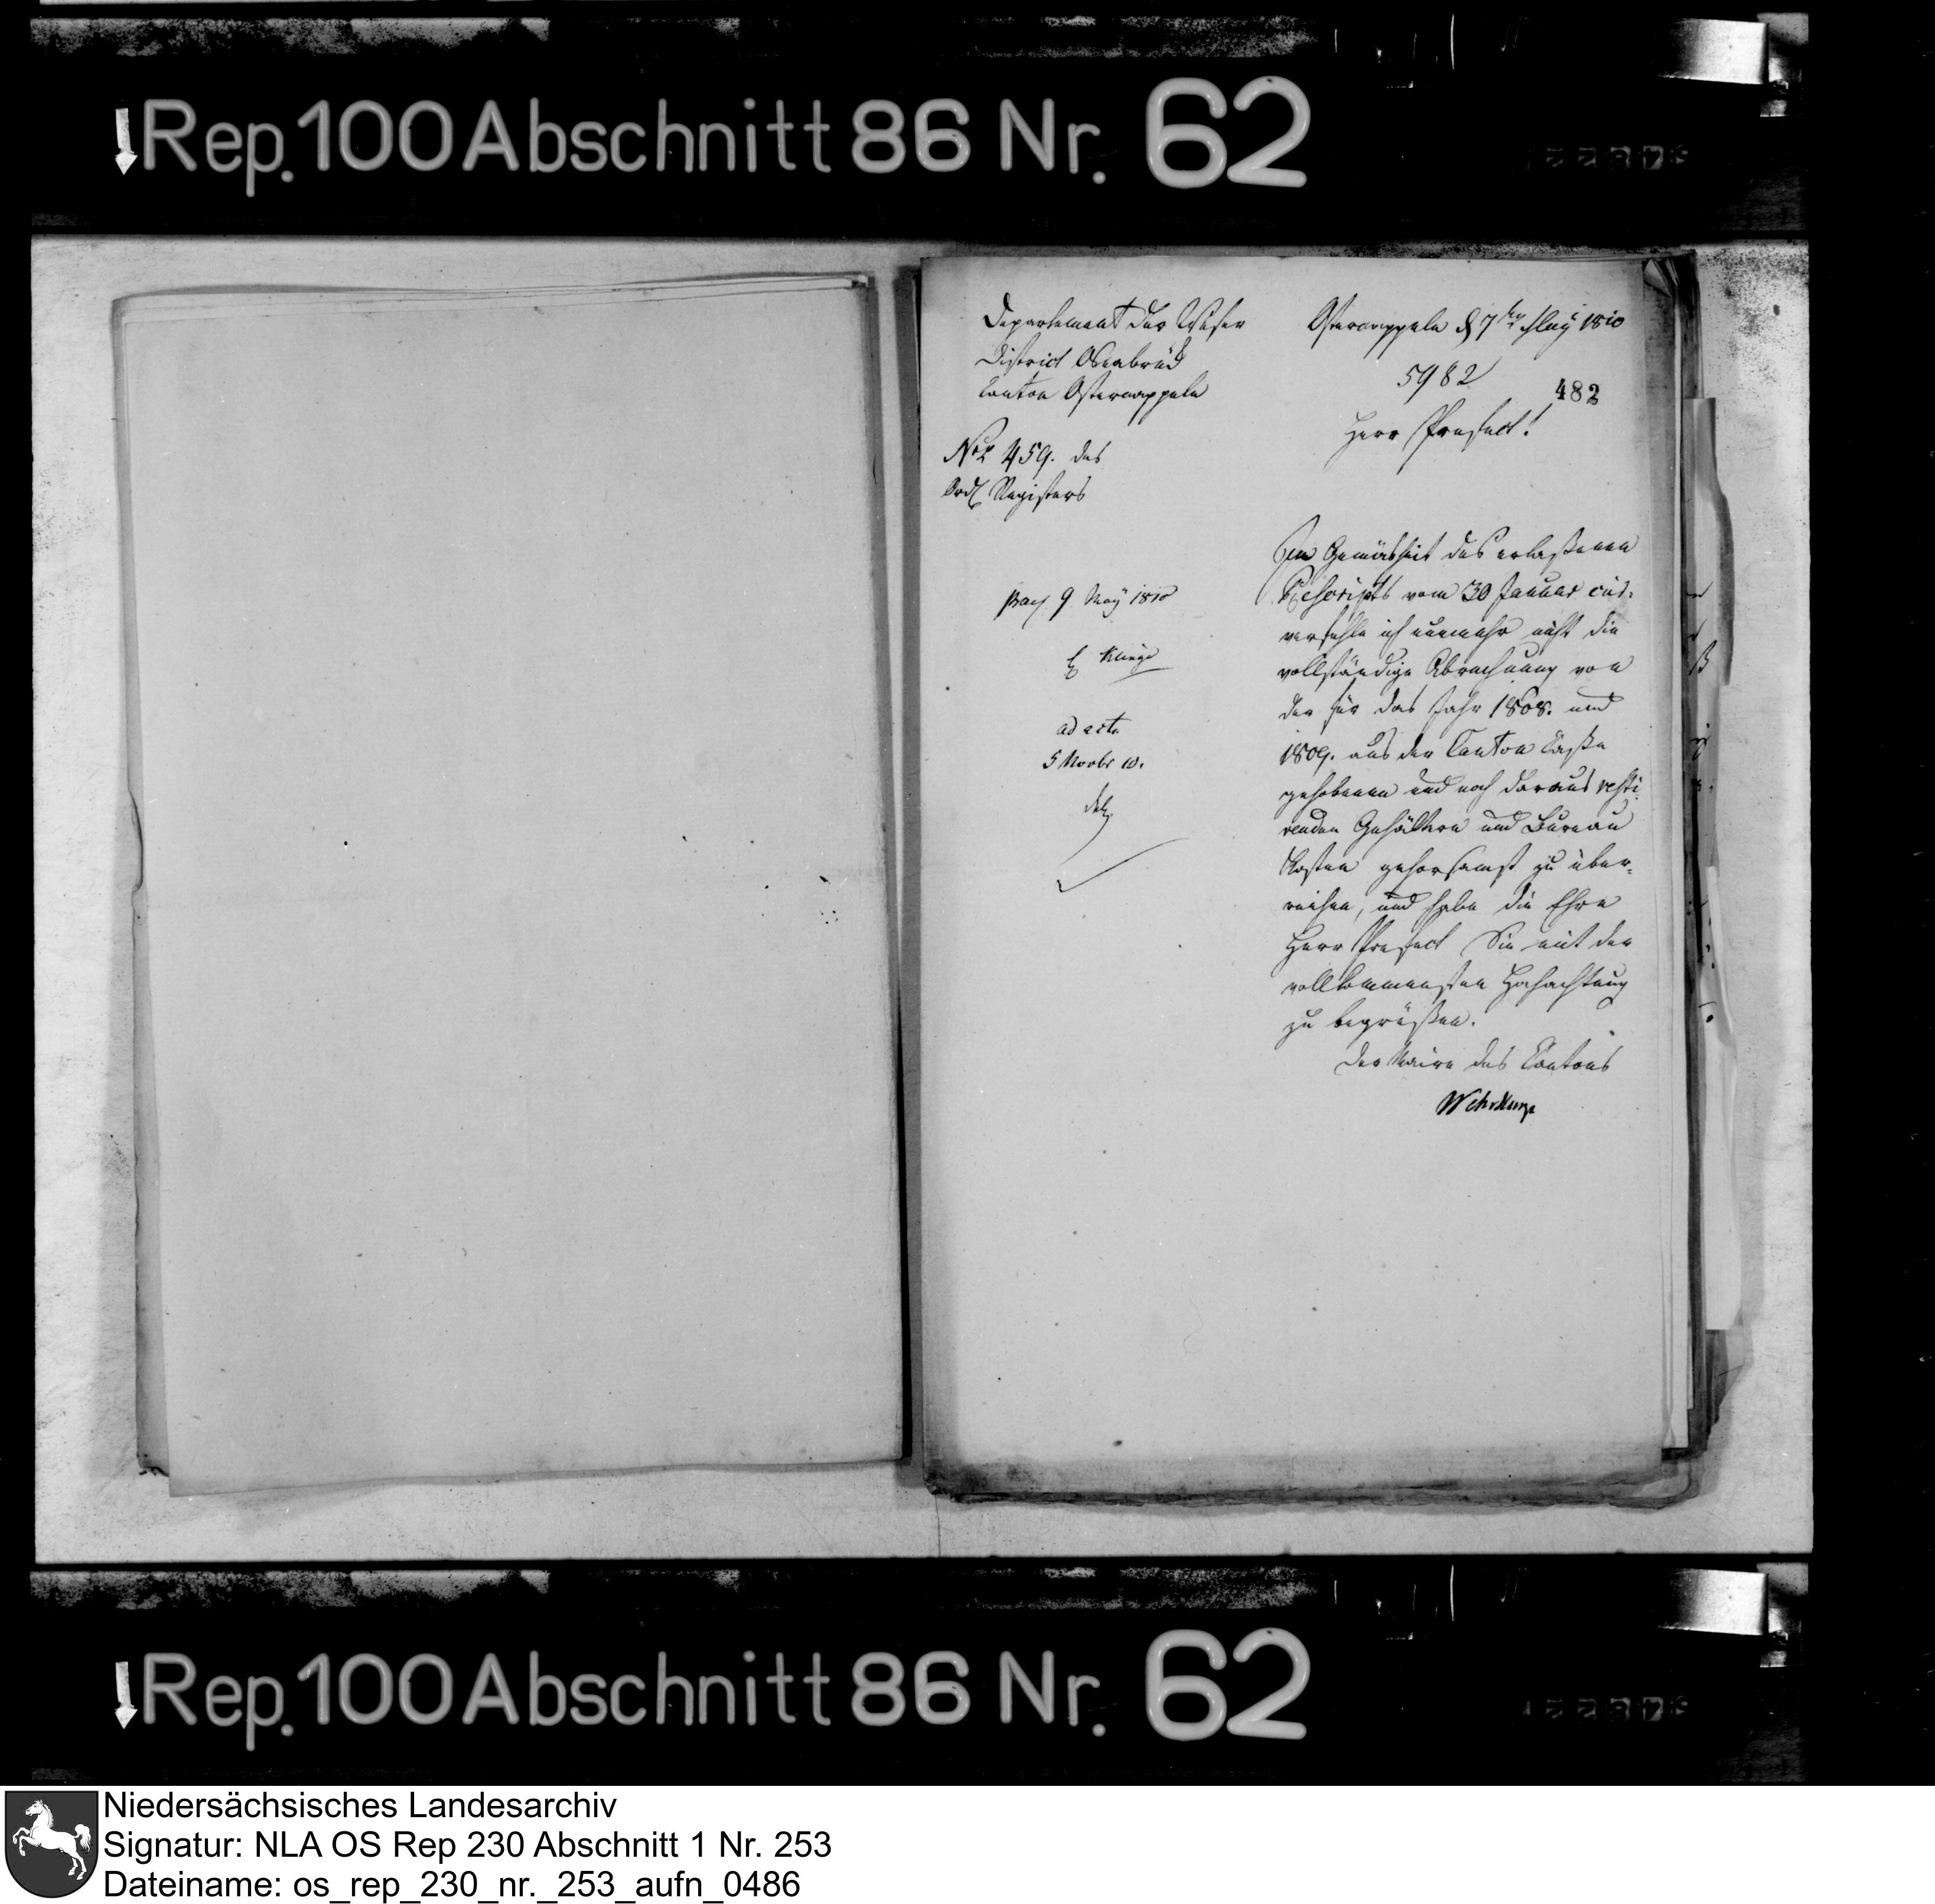 Rep. 100 Abschnitt 86 Nr. 62
Departement der Weser
District Osnabrück
Canton Ostercappeln
Nro 459. des
Registers
Ostercappeln d 7ten May 1810
5982
482
Herr Praefect!
In Gemäsheit des erlaßenen
Rescripts vom 30 Januar cur.
verfehle ich nunmehr nicht die
vollständige Abrechnung von
der für das Jahr 1808. und
1809. aus der Canton Casse
gehobenen und noch daraus resti
renden Gehältern und Bureau
Kosten gehorsamst zu über-
reichen, und habe die Ehre
Herr Praefect Sie mit der
vollkommensten Hochachtung
zu begrüßen.
Der Maire des Cantons
praes 9 May 1810
ad acta
5 Novbr 10.
Rep. 100 Abschnitt 86 Nr. 62
Niedersächsisches Landesarchiv
Signatur: NLA OS Rep 230 Abschnitt 1 Nr. 253
Dateiname: os_rep_230_nr._253_aufn_0486